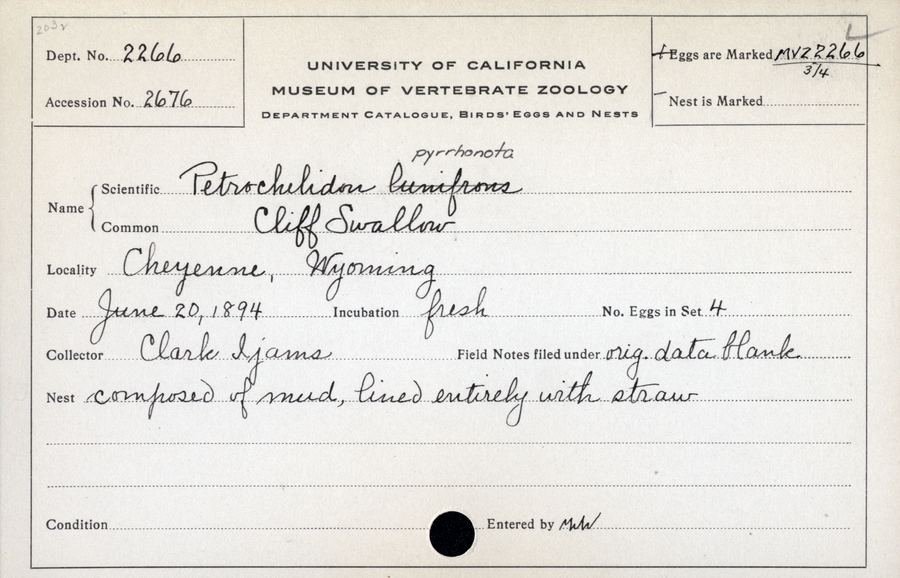 2032
Dept. No. 2266
Accession No. 2676
UNIVERSITY OF CALIFORNIA
MUSEUM OF VERTEBRATE ZOOLOGY
DEPARTMENT CATALOGUE, BIRDS' EGGS AND NESTS
Eggs are Marked MVZ 2266
3/4
Nest is Marked
pyrrhonota
Name { Scientific Petrochelidon lunifrons
Common Cliff Swallow
Locality Cheyenne, Wyoming
Date June 20, 1894 Incubation fresh No. Eggs in Set 4
Collector Clark Ijams Field Notes filed under orig. data blank
Nest composed of mud, lined entirely with straw
Condition Entered by